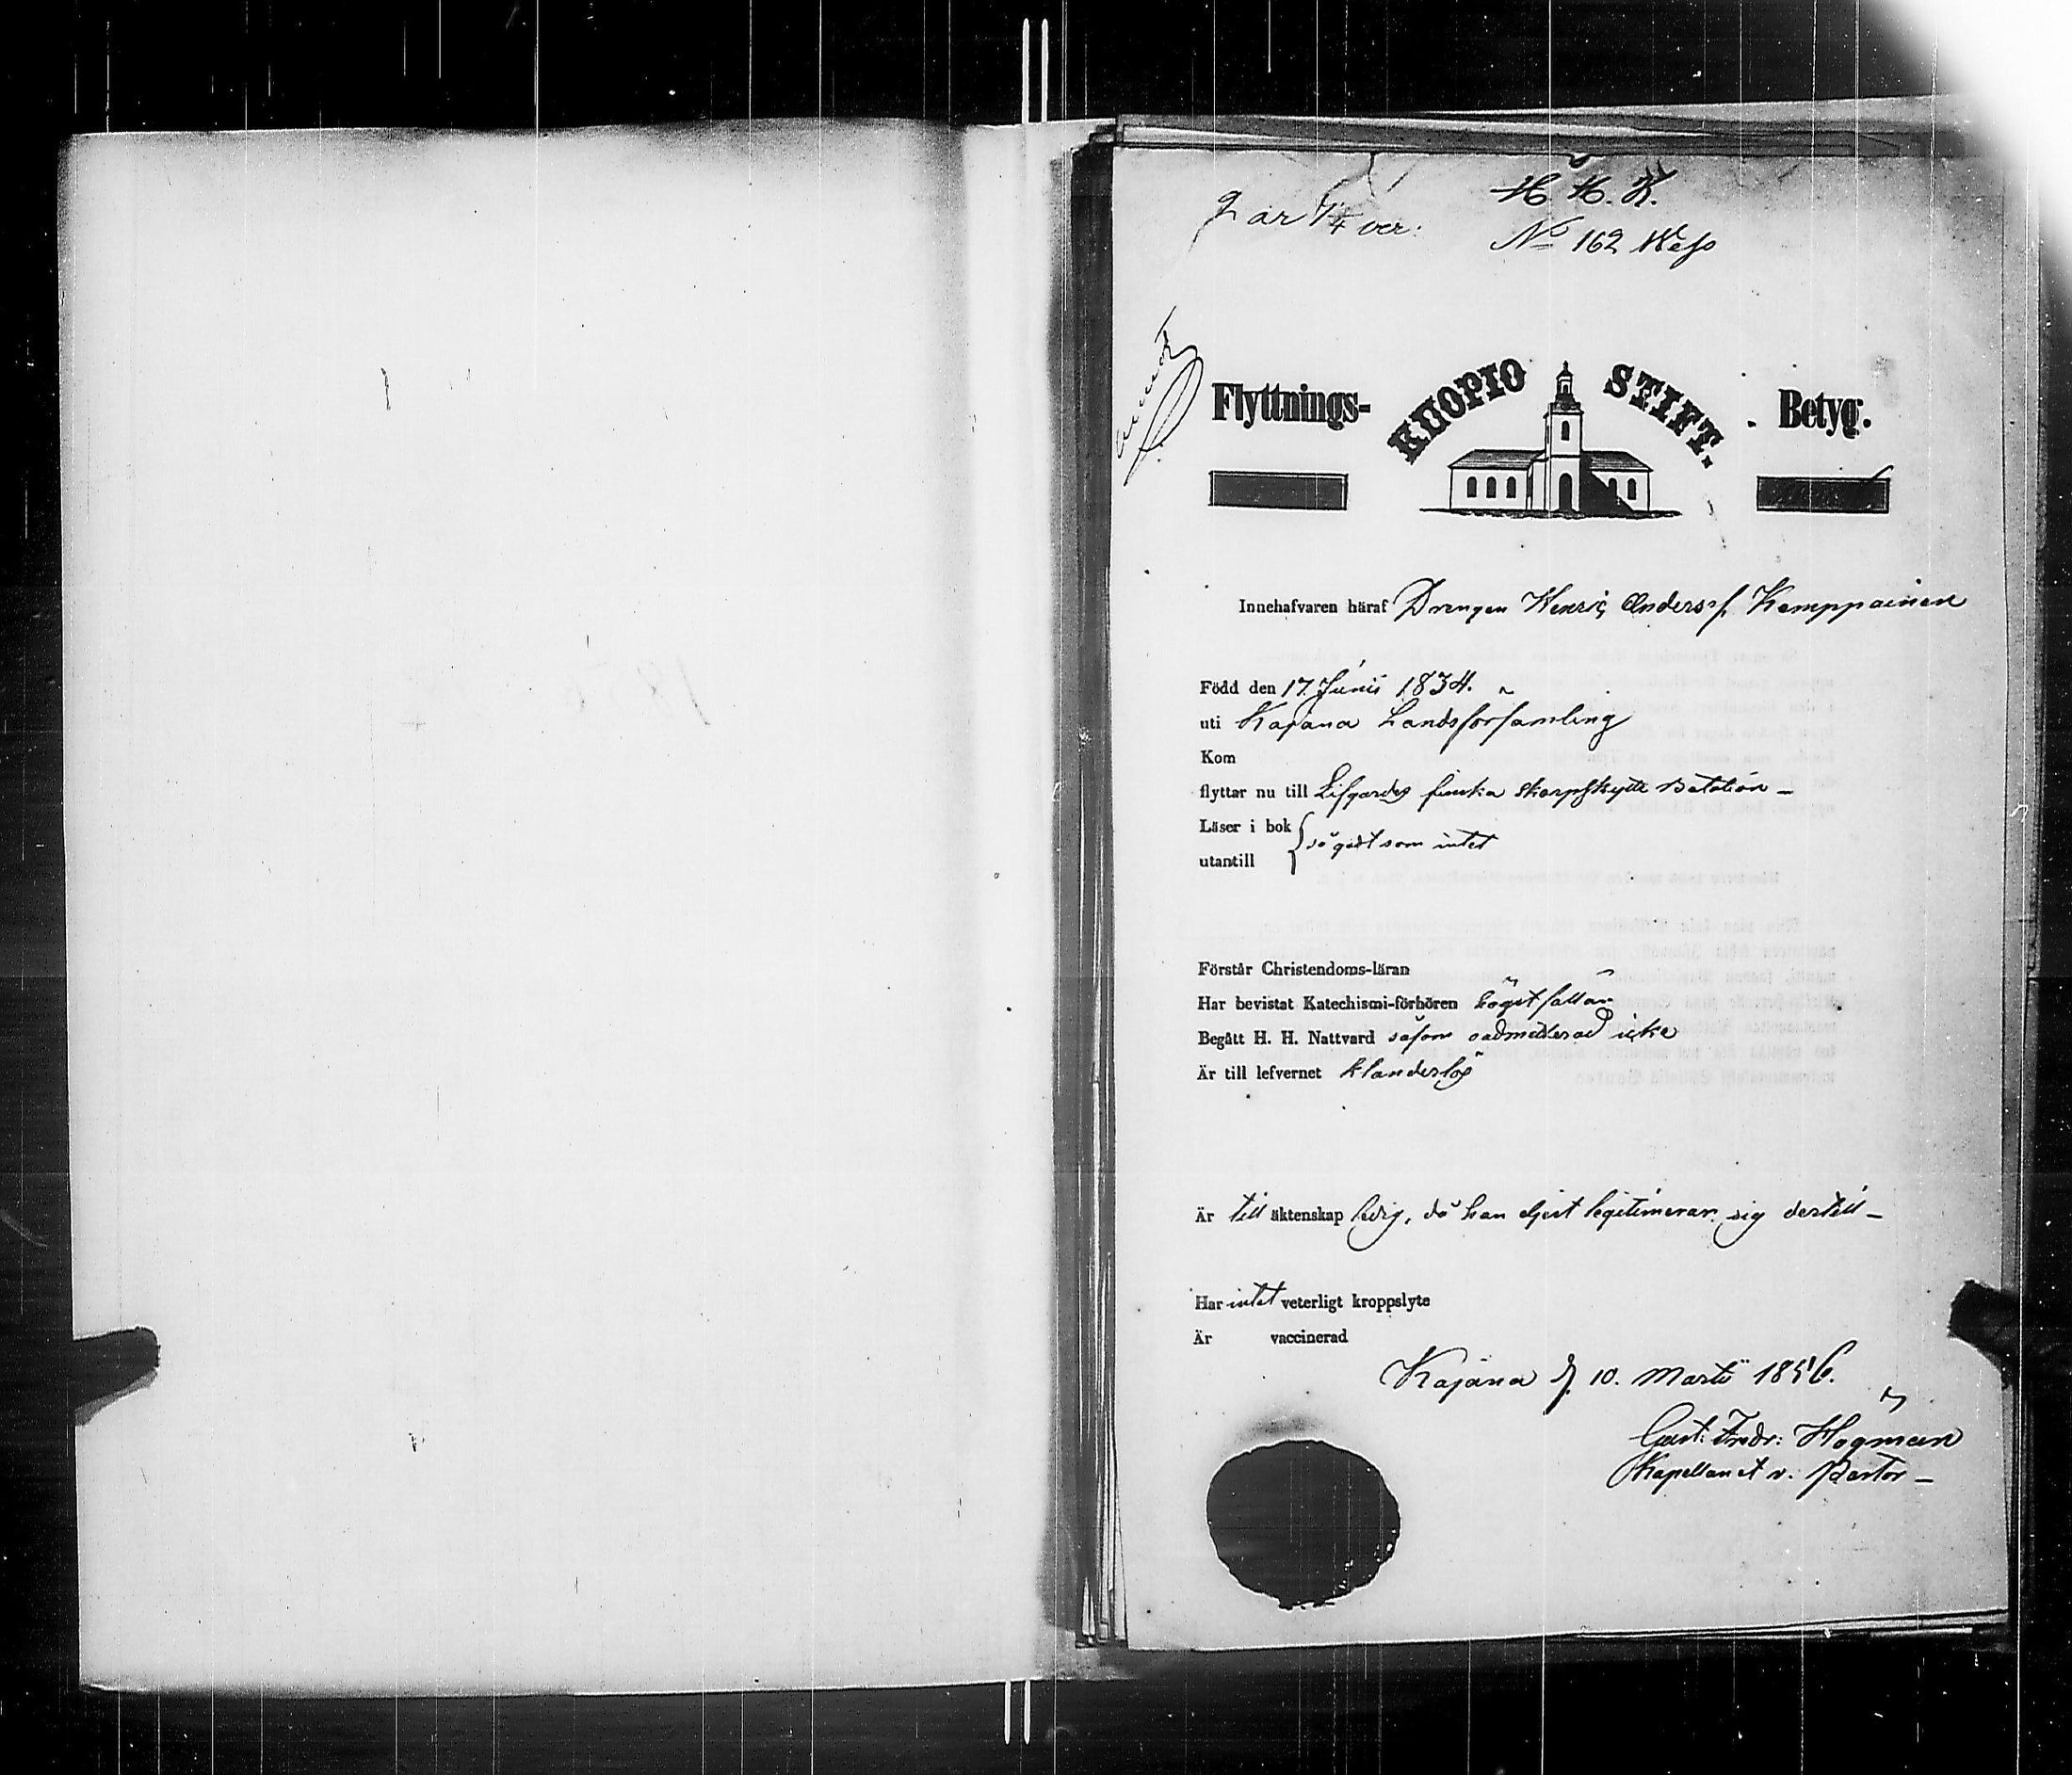 H. H. K.
2 ar 7/4 ver:
No 162
Flyttnings-
KUOPIO STIFT.
Betyg.
Innehafvaren häraf Drengen Henric Anderss. Kemppainen
Född den 17. Junii 1834.
uti Kajana Landsförsamling
Kom
flyttar nu till Lifgardes finska skarpskytte Bataljon –
Läser i bok
så godt som intet
utantill
Förstår Christendoms-läran
Har bevistat Katechismi-förhören högst sällan
Begått H. H. Nattvard såsom oadmitterad icke
Är till lefvernet klanderlös
Är till äktenskap ledig, då han ejest legitimerar sig dertill –
Har intet veterligt kroppslyte
Är vaccinerad
Kajana d. 10. Martii 1856.
Gust: Fredr: Högman
Kapellan et v. Pastor –